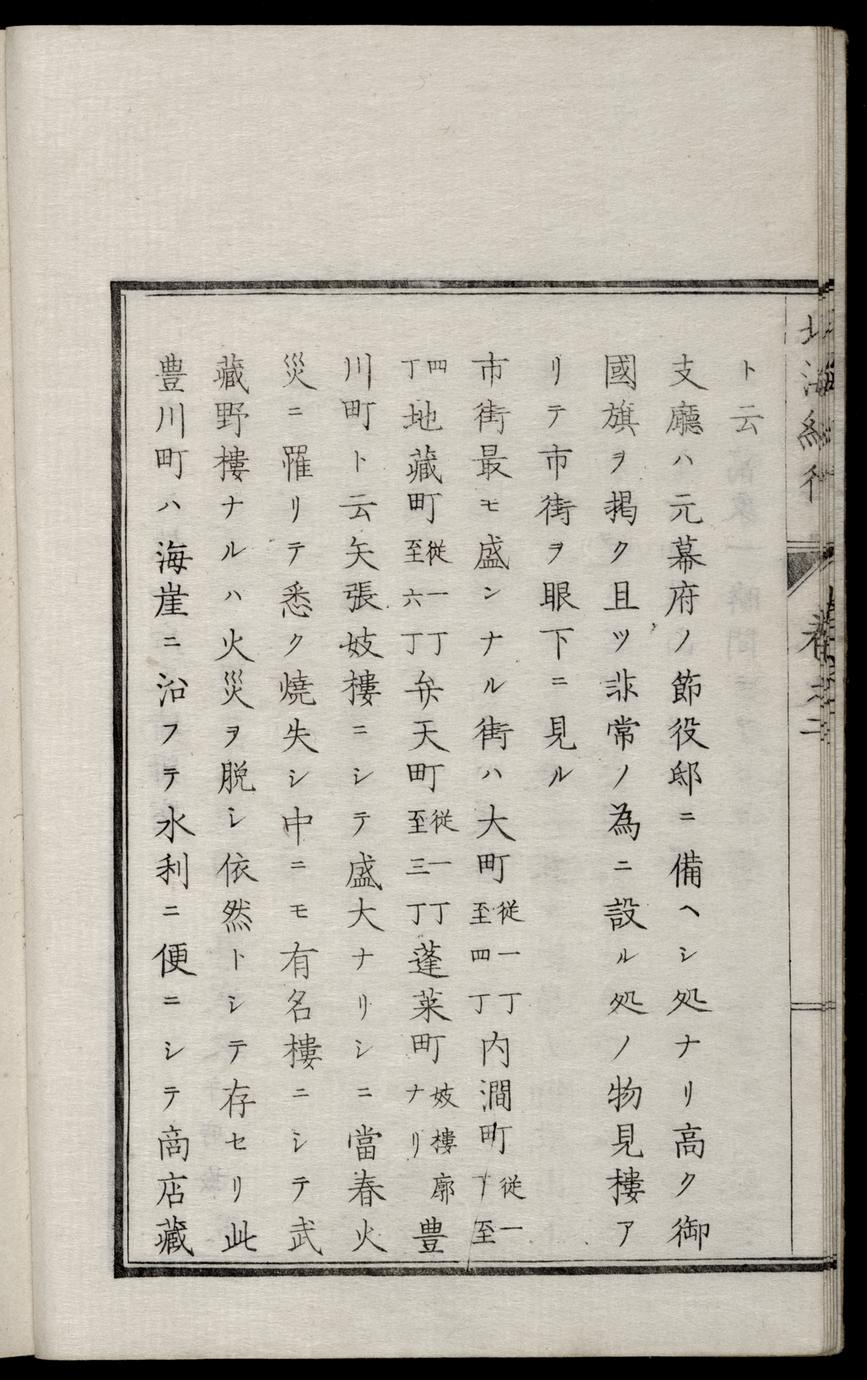 北海紀行　巻之二
ト云
支廳ハ元幕府ノ節役邸ニ備ヘシ処ナリ高ク御
國旗ヲ掲ク且ツ非常ノ為ニ設ル処ノ物見樓ア
リテ市街ヲ眼下ニ見ル
市街最モ盛ンナル街ハ大町從一丁至四丁内澗町從一丁至
四丁地藏町從一丁至六丁弁天町從一丁至三丁蓬莱町妓樓廓ナリ豊
川町ト云矢張妓樓ニシテ盛大ナリシニ當春火
災ニ罹リテ悉ク燒失シ中ニモ有名樓ニシテ武
藏野樓ナルハ火災ヲ脱シ依然トシテ存セリ此
豊川町ハ海崖ニ沿フテ水利ニ便ニシテ商店藏